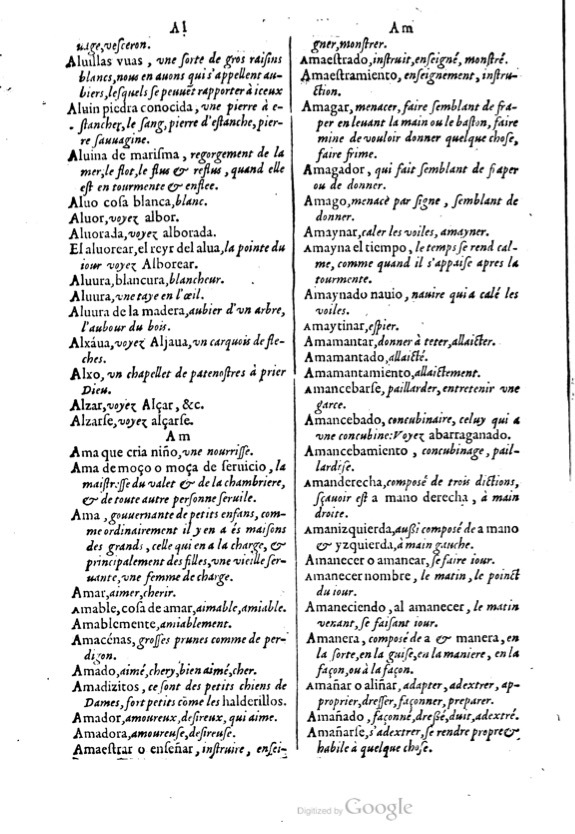 Al
uage, vesceron.
Aluillas vuas, vne sorte de gros raisins
blancs, nous en auons qui s'appellent au-
biers, lesquels se peuuēt rapporter à iceux
Aluin piedra conocida, vne pierre à e-
stancher, le sang, pierre d'estanche, pier-
re sauuagine.
Aluina de marisma, regorgement de la
mer, le flot, le flus & reflus, quand elle
est en tourmente & enflee.
Aluo cosa blanca, blanc.
Aluor, voyez albor.
Aluorada, voyez alborada.
El aluorear, el reyr del alua, la pointe du
iour voyez Alborear.
Aluura, blancura, blancheur.
Aluura, vne taye en l'œil.
Aluura de la madera, aubier d'vn arbre,
l'aubour du bois.
Alxáua, voyez Aljaua, vn carquois de fle-
ches.
Alxo, vn chapellet de patenostres à prier
Dieu.
Alzar, voyez Alçar, &c.
Alzarse, voyez alçarse.
Am
Ama que cria niño, vne nourrisse.
Ama de moço o moça de seruicio, la
maistresse du valet & de la chambriere,
& de toute autre personne seruile.
Ama, gouuernante de petits enfans, com-
me ordinairement il y en a és maisons
des grands, celle qui en a la charge, &
principalement des filles, vne vieille ser-
uante, vne femme de charge.
Amar, aimer, cherir.
Amable, cosa de amar, aimable, amiable.
Amablemente, amiablement.
Amacénas, grosses prunes comme de per-
digon.
Amado, aimé, chery, bien aimé, cher.
Amadizitos, ce sont des petits chiens de
Dames, fort petits cōme les halderillos.
Amador, amoureux, desireux, qui aime.
Amadora, amoureuse, desireuse.
Amaestrar o enseñar, instruire, ensei-
Am
gner, monstrer.
Amaestrado, instruit, enseigné, monstré.
Amaestramiento, enseignement, instru-
ction.
Amagar, menacer, faire semblant de fra-
per en leuant la main ou le baston, faire
mine de vouloir donner quelque chose,
faire frime.
Amagador, qui fait semblant de fraper
ou de donner.
Amago, menace par signe, semblant de
donner.
Amaynar, caler les voiles, amayner.
Amayna el tiempo, le temps se rend cal-
me, comme quand il s'appaise apres la
tourmente.
Amaynado nauio, nauire qui a calé les
voiles.
Amaytinar, espier.
Amamantar, donner à teter, allaicter.
Amamantado, allaicté.
Amamantamiento, allaictement.
Amancebarse, paillarder, entretenir vne
garce.
Amancebado, concubinaire, celuy qui a
vne concubine: Voyez abarraganado.
Amancebamiento, concubinage, pail-
lardise.
Amanderecha, composé de trois dictions,
sçauoir est a mano derecha, à main
droite.
Amanizquierda, außi composé de a mano
& yzquierda, à main gauche.
Amanecer o amancar, se faire iour.
Amanecer nombre, le matin, le poinct
du iour.
Amaneciendo, al amanecer, le matin
venant, se faisant iour.
Amanera, composé de a & manera, en
la sorte, en la guise, en la maniere, en la
façon, ou à la façon.
Amañar o aliñar, adapter, adextrer, ap-
proprier, dresser, façonner, preparer.
Amañado, façonné, dreßé, duit, adextré.
Amañarse, s'adextrer, se rendre propre &
habile à quelque chose.
Digitized by Google